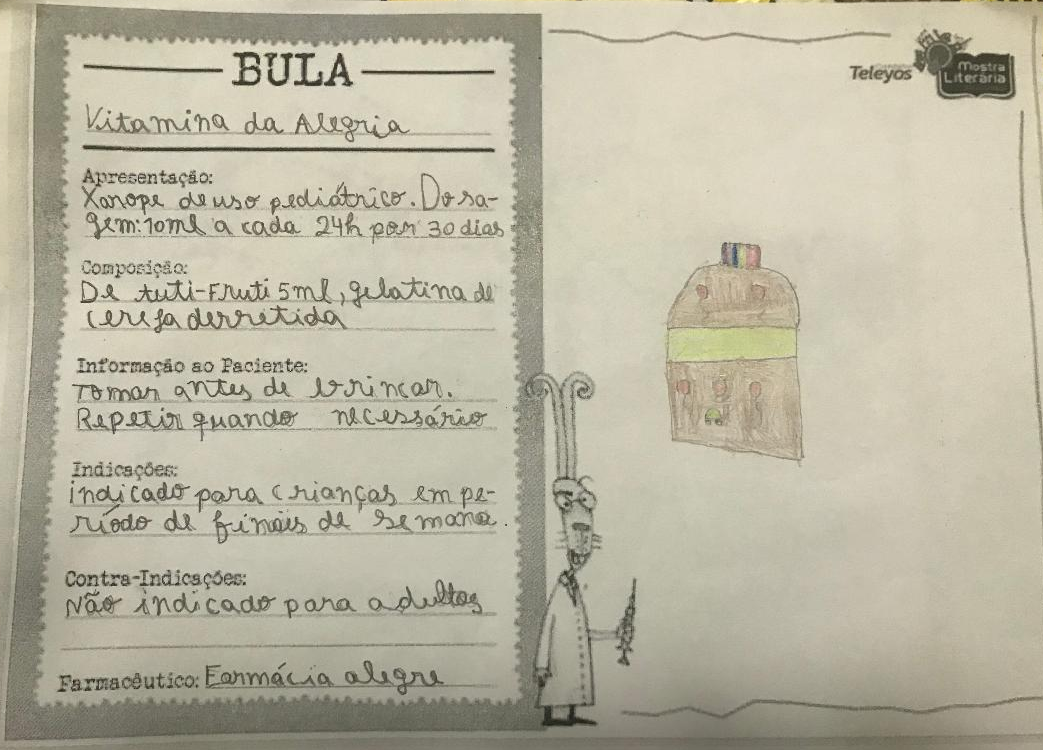 BULA
Vitamina da Alegria
Apresentação:
Xarope de uso pediátrico. Dosa-
gem: 10ml a cada 24h por 30 dias
Composição:
De tuti-Fruti 5ml, gelatina de
cereja derretida
Informação ao Paciente:
Tomar antes de brincar.
Repetir quando necessário
Indicações:
indicado para crianças em pe-
ríodo de finais de semana.
Contra-Indicações:
Não indicado para adultos
Farmacêutico: Farmácia alegre
Teleyos
Mostra
Literária